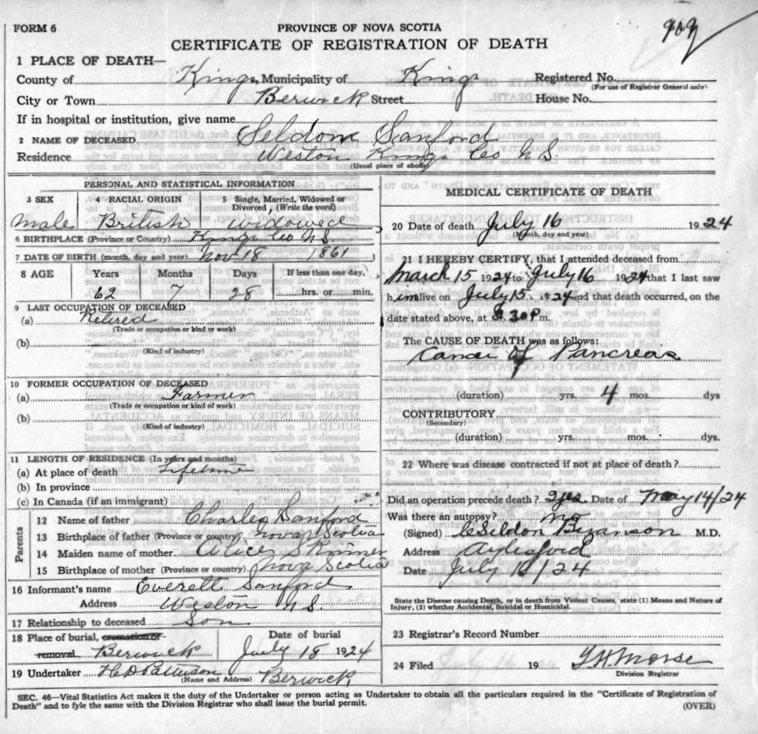 FORM 6
PROVINCE OF NOVA SCOTIA
909
CERTIFICATE OF REGISTRATION OF DEATH
1 PLACE OF DEATH—
County of Kings Municipality of Kings Registered No.
(For use of Registrar General only)
City or Town Berwick Street House No.
If in hospital or institution, give name
2 NAME OF DECEASED Seldom Sanford
Residence Weston Kings Co N.S.
(Usual place of abode)
PERSONAL AND STATISTICAL INFORMATION
3 SEX 4 RACIAL ORIGIN 5 Single, Married, Widowed or Divorced, (Write the word)
male British widowed
6 BIRTHPLACE (Province or Country) Kings Co N.S.
7 DATE OF BIRTH (month, day and year) Nov 18 1861
8 AGE Years Months Days If less than one day,
62 7 28 hrs. or min.
9 LAST OCCUPATION OF DECEASED
(a) Retired
(Trade or occupation or kind of work)
(b)
(Kind of industry)
10 FORMER OCCUPATION OF DECEASED
(a) Farmer
(Trade or occupation or kind of work)
(b)
(Kind of industry)
11 LENGTH OF RESIDENCE (In years and months)
(a) At place of death Lifetime
(b) In province
(c) In Canada (if an immigrant)
Parents
12 Name of father Charles Sanford
13 Birthplace of father (Province or country) Nova Scotia
14 Maiden name of mother Alice Skinner
15 Birthplace of mother (Province or country) Nova Scotia
16 Informant's name Everett Sanford
Address Weston N S.
17 Relationship to deceased Son
18 Place of burial, cremation or removal Berwick Date of burial July 18 1924
19 Undertaker Berwick
(Name and Address)
MEDICAL CERTIFICATE OF DEATH
20 Date of death July 16 1924
(Month, day and year)
21 I HEREBY CERTIFY, that I attended deceased from
March 15 1924 to July 16 1924 that I last saw
him alive on July 15 1924 and that death occurred, on the
date stated above, at 8.30 P m.
The CAUSE OF DEATH was as follows:
Cancer of Pancreas
(duration) yrs. 4 mos. dys
CONTRIBUTORY
(Secondary)
(duration) yrs. mos. dys.
22 Where was disease contracted if not at place of death?
Did an operation precede death? yes Date of May 14/24
Was there an autopsy? no
(Signed) M.D.
Address Aylesford
Date July 16/24
State the Disease causing Death, or in death from Violent Causes, state (1) Means and Nature of Injury, (2) whether Accidental, Suicidal or Homicidal.
23 Registrar's Record Number
24 Filed 19 Morse
Division Registrar
SEC. 46—Vital Statistics Act makes it the duty of the Undertaker or person acting as Undertaker to obtain all the particulars required in the "Certificate of Registration of
Death" and to fyle the same with the Division Registrar who shall issue the burial permit. (OVER)